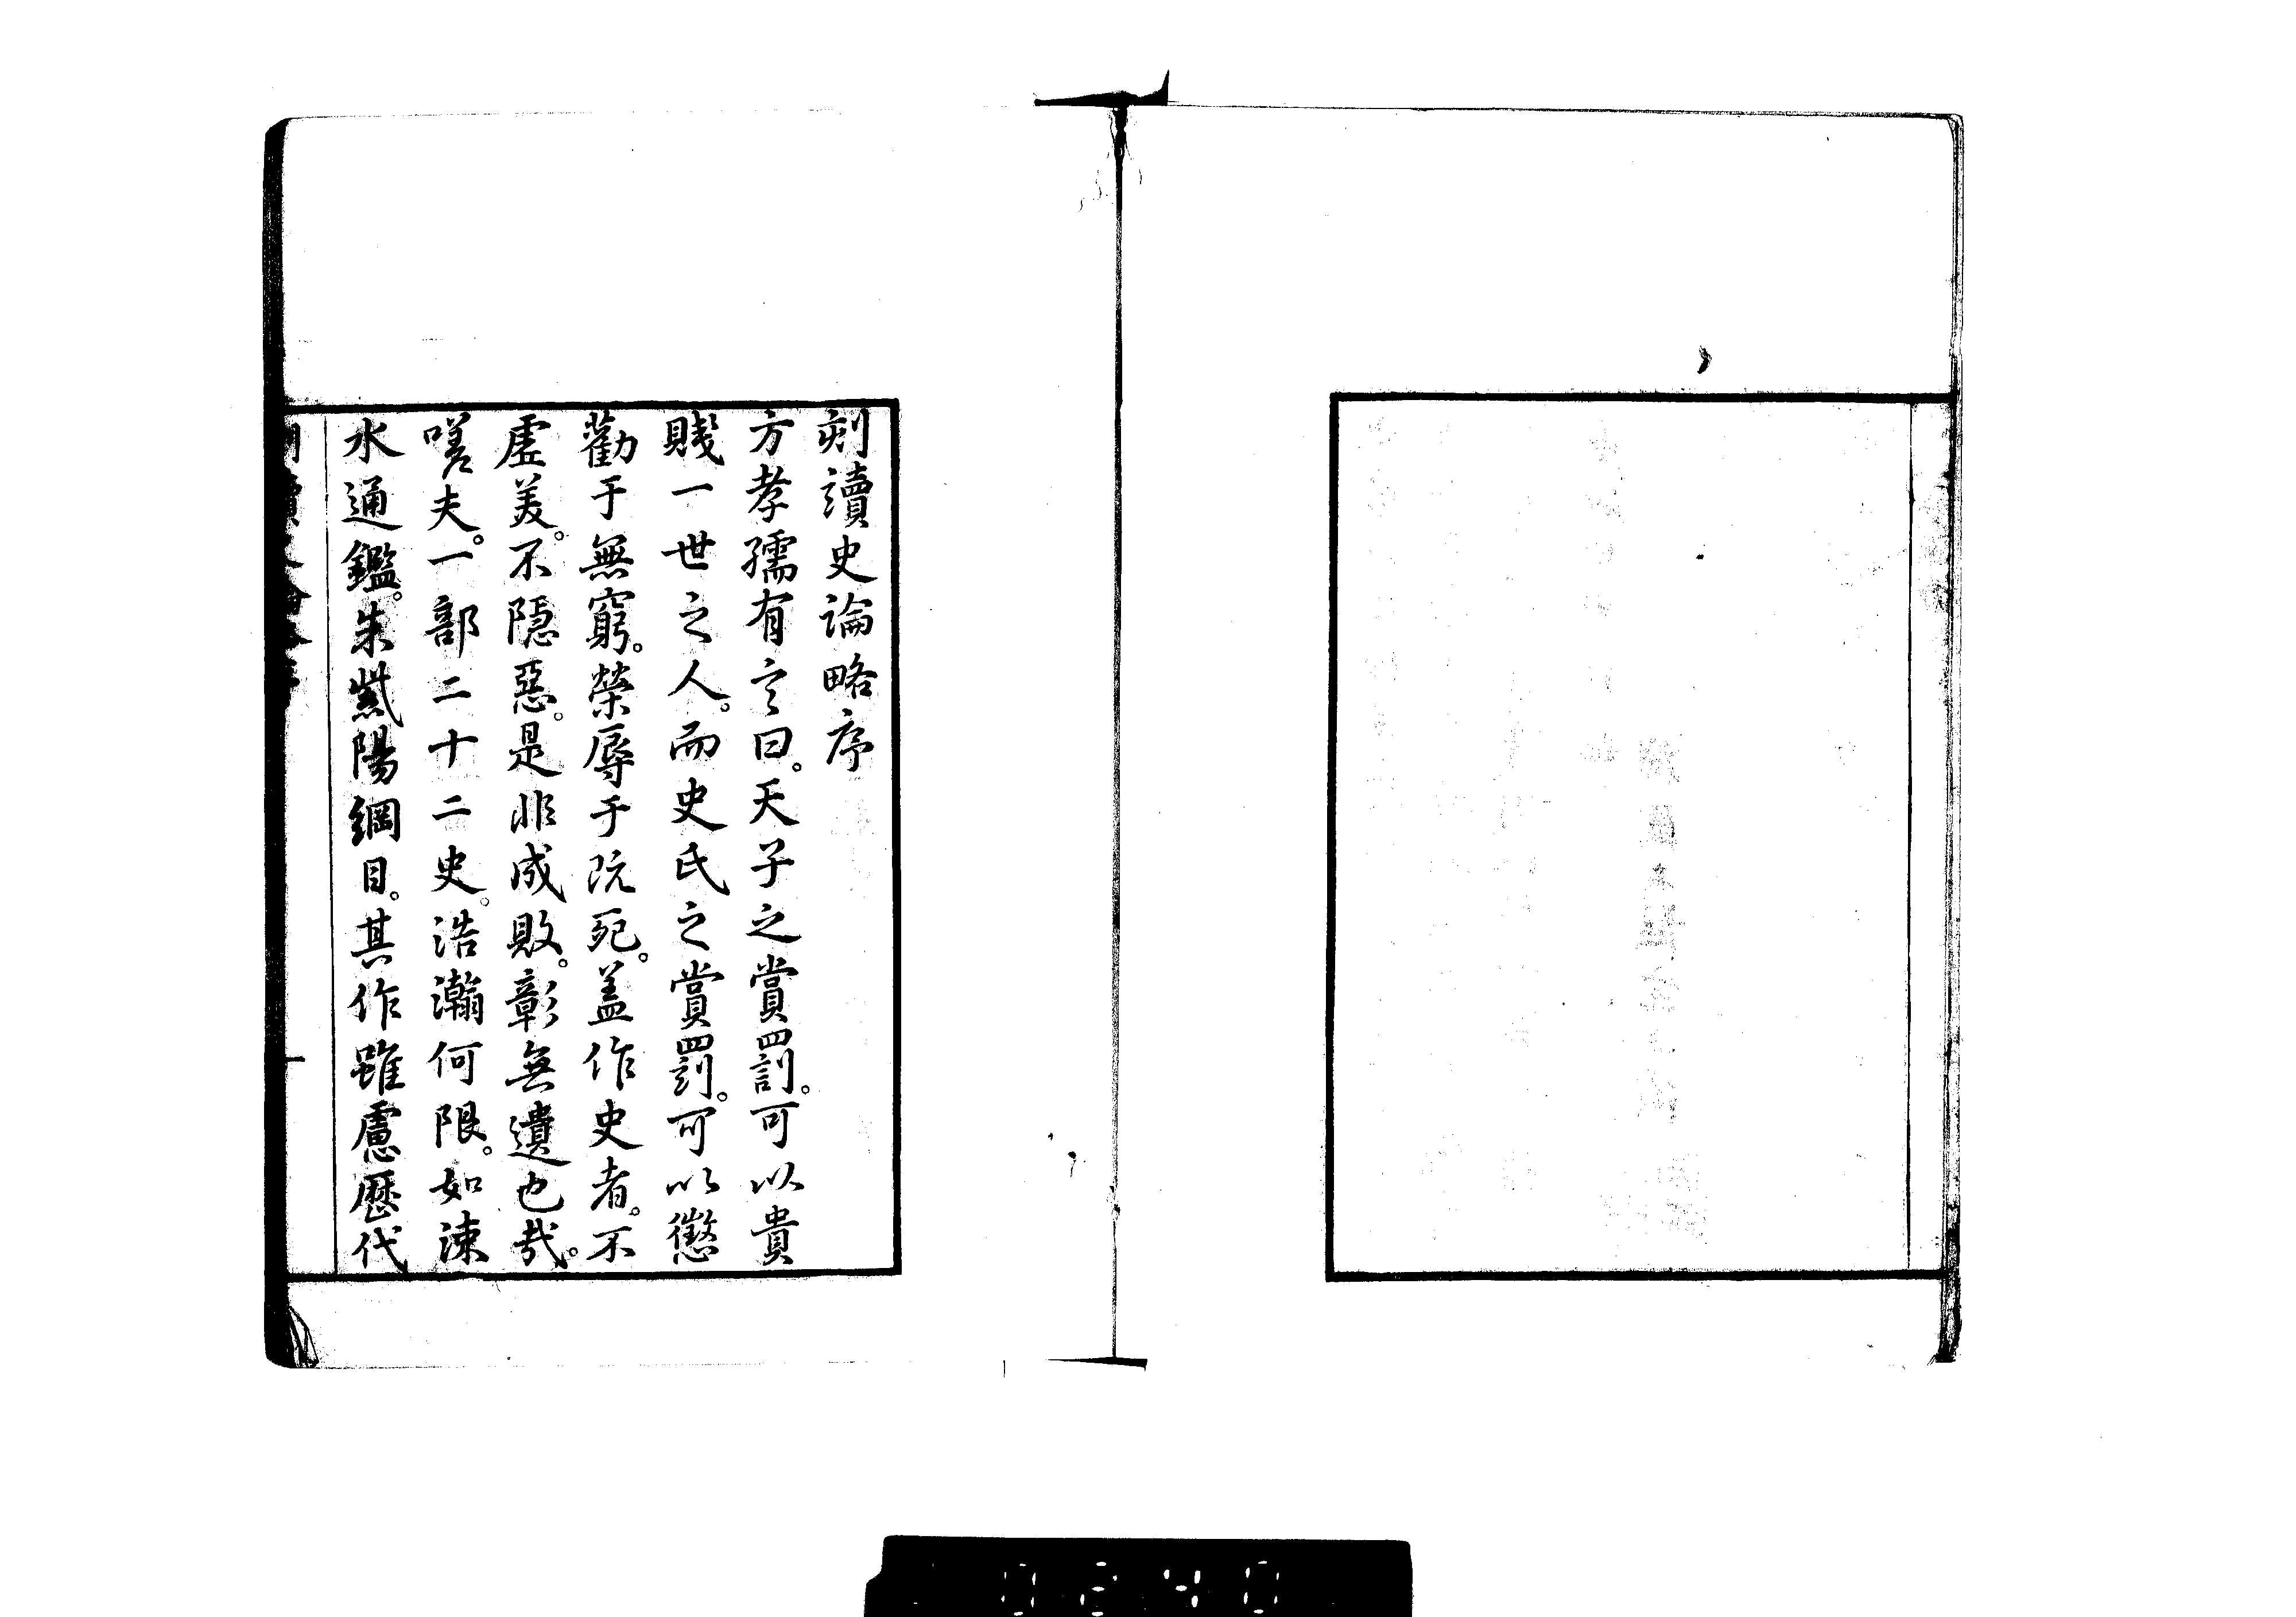 刻讀史論略序
方孝孺有言曰。天子之賞罰。可以貴
賤一世之人。而史氏之賞罰。可以懲
勸于無窮。榮辱于既死。盖作史者。不
虛美。不隱惡。是非成敗。彰無遺也哉。
嗟夫。一部二十二史。浩瀚何限。如涑
水通鑑。朱紫陽綱目。其作雖慮歷代